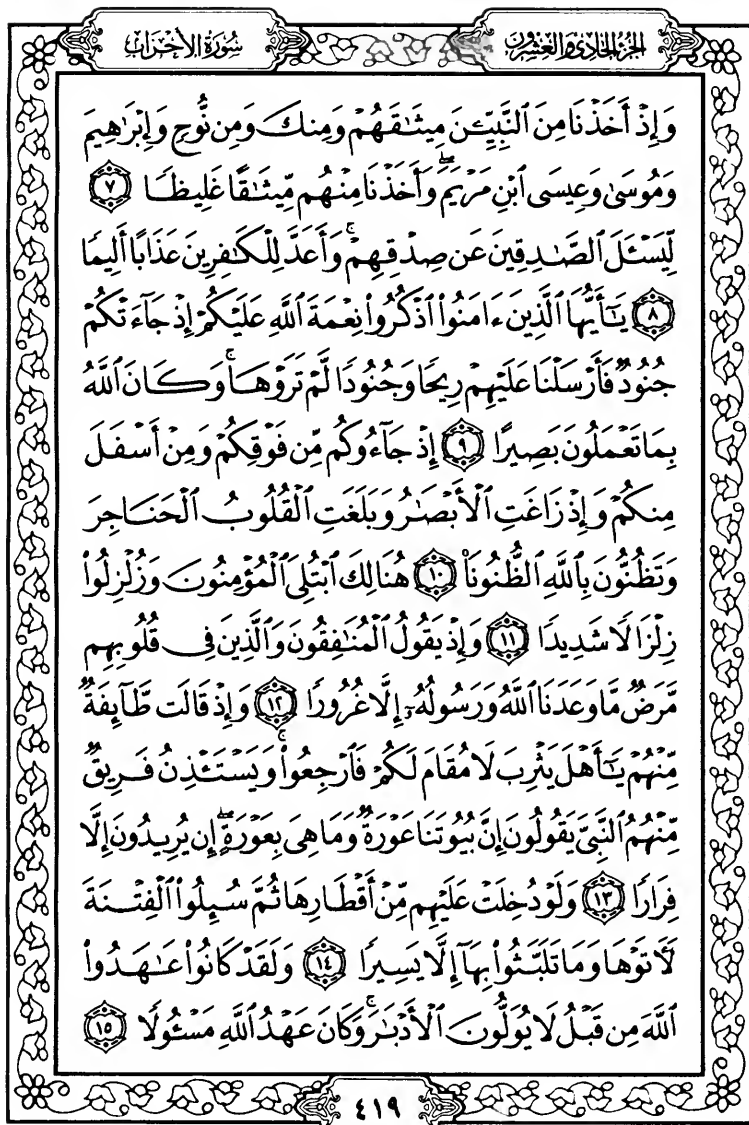 سُورَةُ الأَحْزَابِ
الجُزْءُ الحَادِي وَالعِشْرُونَ
وَإِذۡ أَخَذۡنَا مِنَ ٱلنَّبِيِّـۧنَ مِيثَٰقَهُمۡ وَمِنكَ وَمِن نُّوحٖ وَإِبۡرَٰهِيمَ
وَمُوسَىٰ وَعِيسَى ٱبۡنِ مَرۡيَمَۖ وَأَخَذۡنَا مِنۡهُم مِّيثَٰقًا غَلِيظٗا ٧
لِّيَسۡـَٔلَ ٱلصَّٰدِقِينَ عَن صِدۡقِهِمۡۚ وَأَعَدَّ لِلۡكَٰفِرِينَ عَذَابًا أَلِيمٗا
٨ يَٰٓأَيُّهَا ٱلَّذِينَ ءَامَنُواْ ٱذۡكُرُواْ نِعۡمَةَ ٱللَّهِ عَلَيۡكُمۡ إِذۡ جَآءَتۡكُمۡ
جُنُودٞ فَأَرۡسَلۡنَا عَلَيۡهِمۡ رِيحٗا وَجُنُودٗا لَّمۡ تَرَوۡهَاۚ وَكَانَ ٱللَّهُ
بِمَا تَعۡمَلُونَ بَصِيرًا ٩ إِذۡ جَآءُوكُم مِّن فَوۡقِكُمۡ وَمِنۡ أَسۡفَلَ
مِنكُمۡ وَإِذۡ زَاغَتِ ٱلۡأَبۡصَٰرُ وَبَلَغَتِ ٱلۡقُلُوبُ ٱلۡحَنَاجِرَ
وَتَظُنُّونَ بِٱللَّهِ ٱلظُّنُونَا۠ ١٠ هُنَالِكَ ٱبۡتُلِيَ ٱلۡمُؤۡمِنُونَ وَزُلۡزِلُواْ
زِلۡزَالٗا شَدِيدٗا ١١ وَإِذۡ يَقُولُ ٱلۡمُنَٰفِقُونَ وَٱلَّذِينَ فِي قُلُوبِهِم
مَّرَضٞ مَّا وَعَدَنَا ٱللَّهُ وَرَسُولُهُۥٓ إِلَّا غُرُورٗا ١٢ وَإِذۡ قَالَت طَّآئِفَةٞ
مِّنۡهُمۡ يَٰٓأَهۡلَ يَثۡرِبَ لَا مُقَامَ لَكُمۡ فَٱرۡجِعُواْۚ وَيَسۡتَـٔۡذِنُ فَرِيقٞ
مِّنۡهُمُ ٱلنَّبِيَّ يَقُولُونَ إِنَّ بُيُوتَنَا عَوۡرَةٞ وَمَا هِيَ بِعَوۡرَةٍۖ إِن يُرِيدُونَ إِلَّا
فِرَارٗا ١٣ وَلَوۡ دُخِلَتۡ عَلَيۡهِم مِّنۡ أَقۡطَارِهَا ثُمَّ سُئِلُواْ ٱلۡفِتۡنَةَ
لَأٓتَوۡهَا وَمَا تَلَبَّثُواْ بِهَآ إِلَّا يَسِيرٗا ١٤ وَلَقَدۡ كَانُواْ عَٰهَدُواْ
ٱللَّهَ مِن قَبۡلُ لَا يُوَلُّونَ ٱلۡأَدۡبَٰرَۚ وَكَانَ عَهۡدُ ٱللَّهِ مَسۡـُٔولٗا ١٥
٤١٩